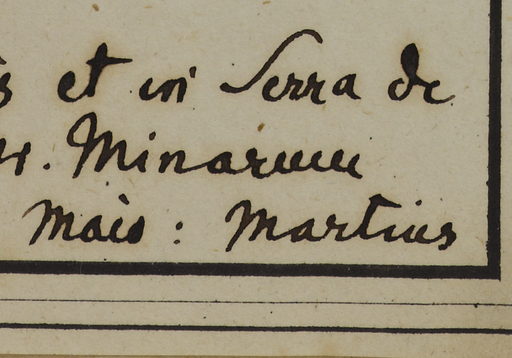 et in Serra de
Minarum
Maio : Martius